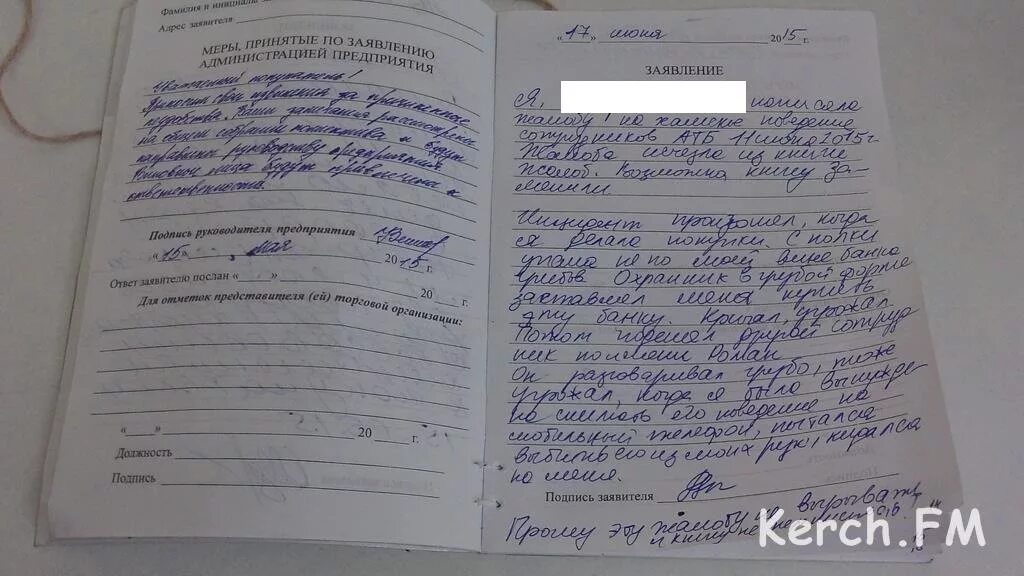 Фамилия и инициалы
Адрес заявителя
МЕРЫ, ПРИНЯТЫЕ ПО ЗАЯВЛЕНИЮ
АДМИНИСТРАЦИЕЙ ПРЕДПРИЯТИЯ
Уважаемый покупатель!
Приносим свои извинения за причиненные
неудобства. Ваши замечания рассмотрены
на общем собрании коллектива и будут
направлены руководству предприятия.
Виновные лица будут привлечены к
ответственности!
Подпись руководителя предприятия
"15" мая 2015 г.
Ответ заявителю послан " " 20 г.
Для отметок представителя (ей) торговой организации:
" " 20 г.
Должность
Подпись
"17" июня 2015 г.
ЗАЯВЛЕНИЕ
Я, написала
жалобу на хамское поведение
сотрудников АТБ 11 июня 2015г
Жалоба исчезла из книги
жалоб. Возможно книгу за-
менили
Инцидент произошел, когда
я делала покупки. С полки
упала не по моей вине банка
грибов. Охранник в грубой форме
заставлял меня купить
эту банку. Кричал, угрожал.
Потом подошел другой сотруд
ник по имени Роман
Он разговаривал грубо, тоже
угрожал, когда я была вынужде
на снимать его поведение на
мобильный телефон, пытался
выбить его из моих рук, кидался
на меня.
Подпись заявителя
Прошу эту жалобу не вырывать
и книгу не
Kerch.FM